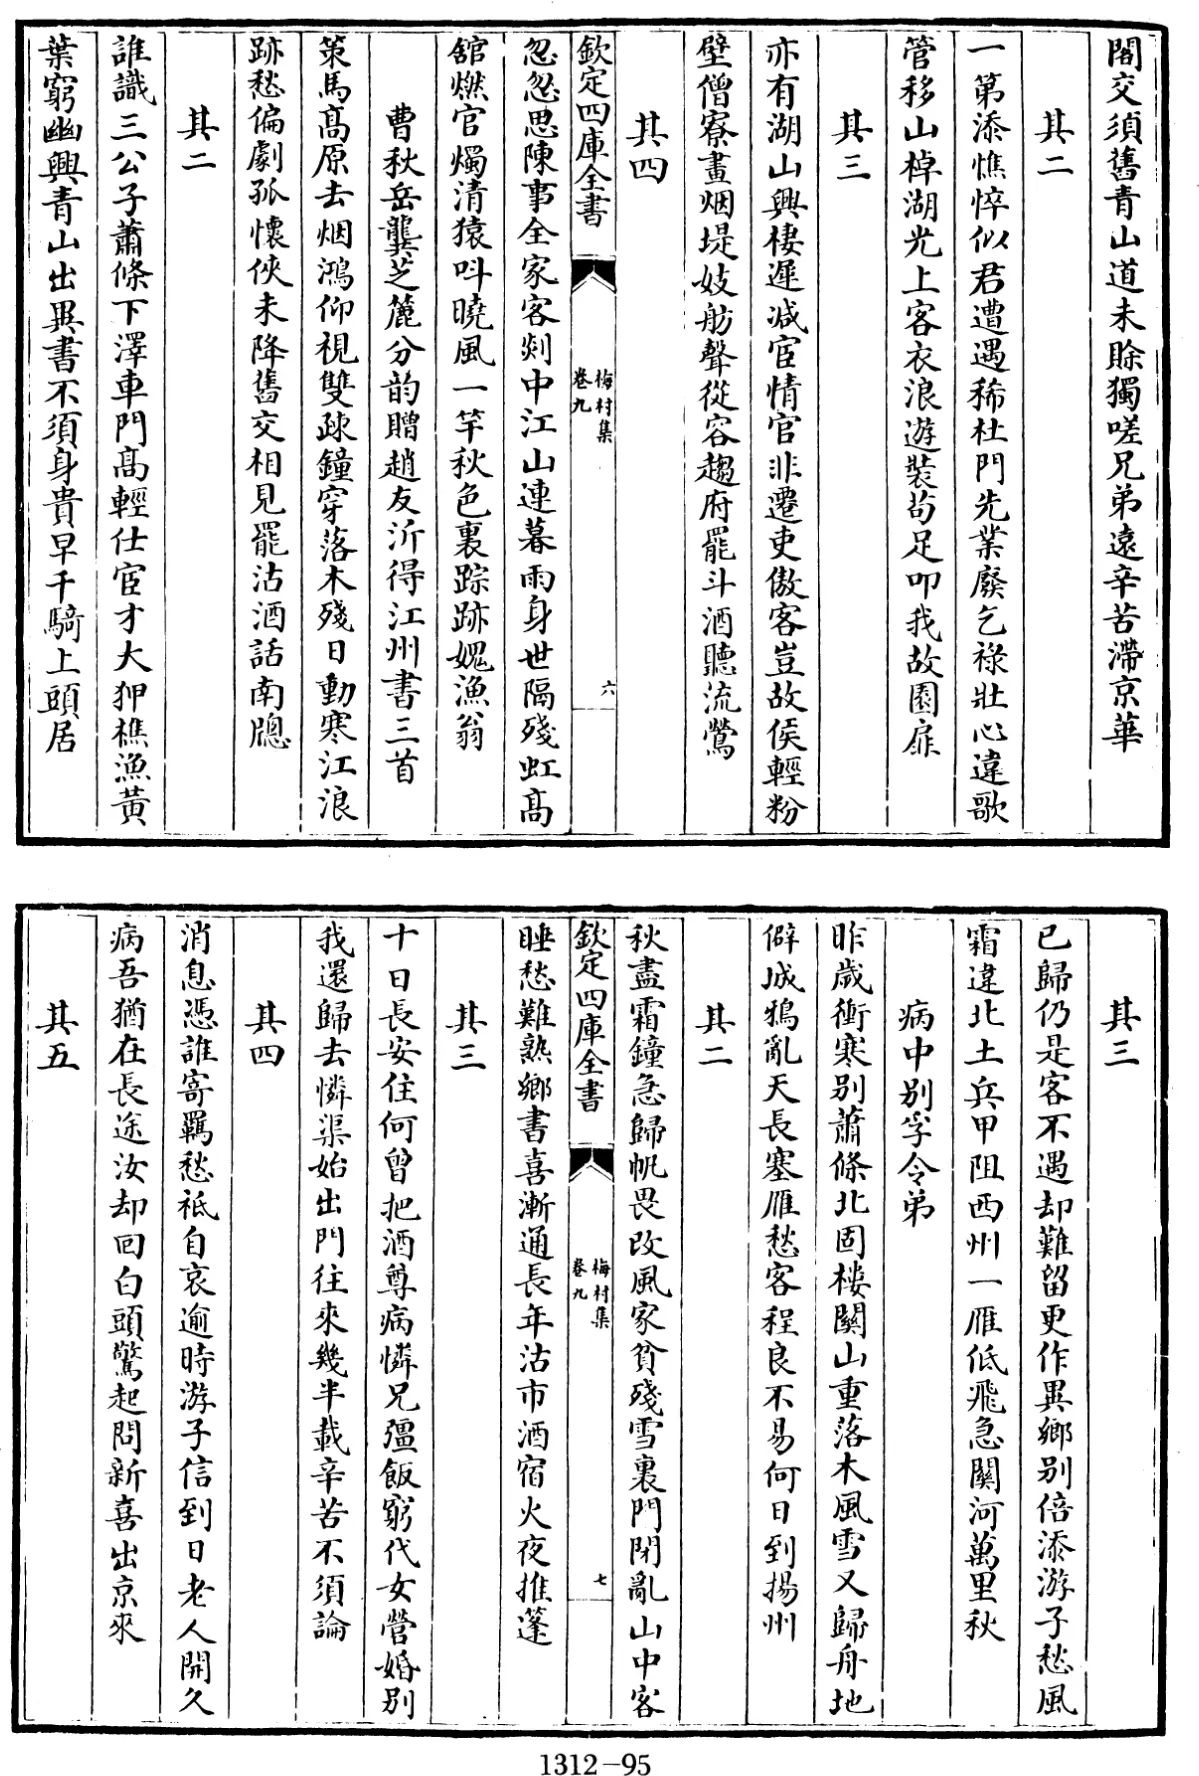 閣交須舊青山道未賖獨嗟兄弟遠辛苦滯京華
其二
一第添憔悴似君遭遇稀杜門先業廢乞祿壯心違歌
管移山棹湖光上客衣浪遊裝茍足叩我故園扉
其三
亦有湖山興棲遲減宦情官非遷吏傲客豈故侯輕粉
壁僧寮畫烟堤妓舫聲從容趨府罷斗酒聽流鶯
其四
欽定四庫全書
梅村集
卷九
六
忽忽思陳事全家客剡中江山連暮雨身世隔殘虹髙
舘燃官燭清猿呌曉風一竿秋色裏踪跡媿漁翁
曹秋岳龔芝麓分韵贈趙友沂得江州書三首
策馬髙原去烟鴻仰視雙疎鐘穿落木殘日動寒江浪
跡愁偏劇孤懷俠未降舊交相見罷沽酒話南牎
其二
誰識三公子蕭條下澤車門髙輕仕宦才大狎樵漁黃
葉窮幽興青山出異書不須身貴早千騎上頭居
其三
已歸仍是客不遇却難留更作異鄉别倍添游子愁風
霜違北土兵甲阻西州一雁低飛急關河萬里秋
病中别孚令弟
昨歳衝寒别蕭條北固樓關山重落木風雪又歸舟地
僻城鴉亂天長塞雁愁客程良不易何日到揚州
其二
秋盡霜鐘急歸帆畏改風家貧殘雪裏門閉亂山中客
欽定四庫全書
梅村集
卷九
七
睡愁難熟鄉書喜漸通長年沽市酒宿火夜推蓬
其三
十日長安住何曾把酒尊病憐兄彊飯窮代女營婚别
我還歸去憐渠始出門往來幾半載辛苦不須論
其四
消息憑誰寄羈愁祇自哀逾時游子信到日老人開久
病吾猶在長途汝却回白頭驚起問新喜出京來
其五
1312-95